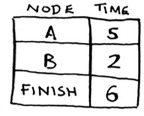 NODE TIME
A 5
B 2
FINISH 6